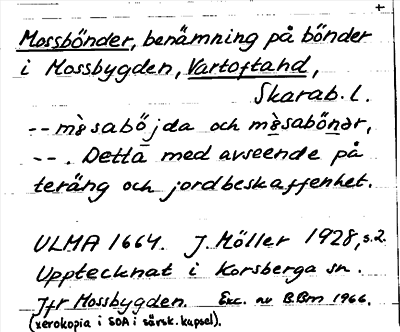 +
Mossbönder, benämning på bönder
i Mossbygden, Vartoftahd,
Skarab. l.
-- mè̩sabö̱jda och mè̩sabönər,
--. Detta med avseende på
teräng och jordbeskaffenhet.
ULMA 1664. J. Möller 1928, s. 2.
Upptecknat i Korsberga sn.
Jfr Mossbygden. Exc. av BBm 1966.
(xerokopia i SOA i särsk. kapsel).